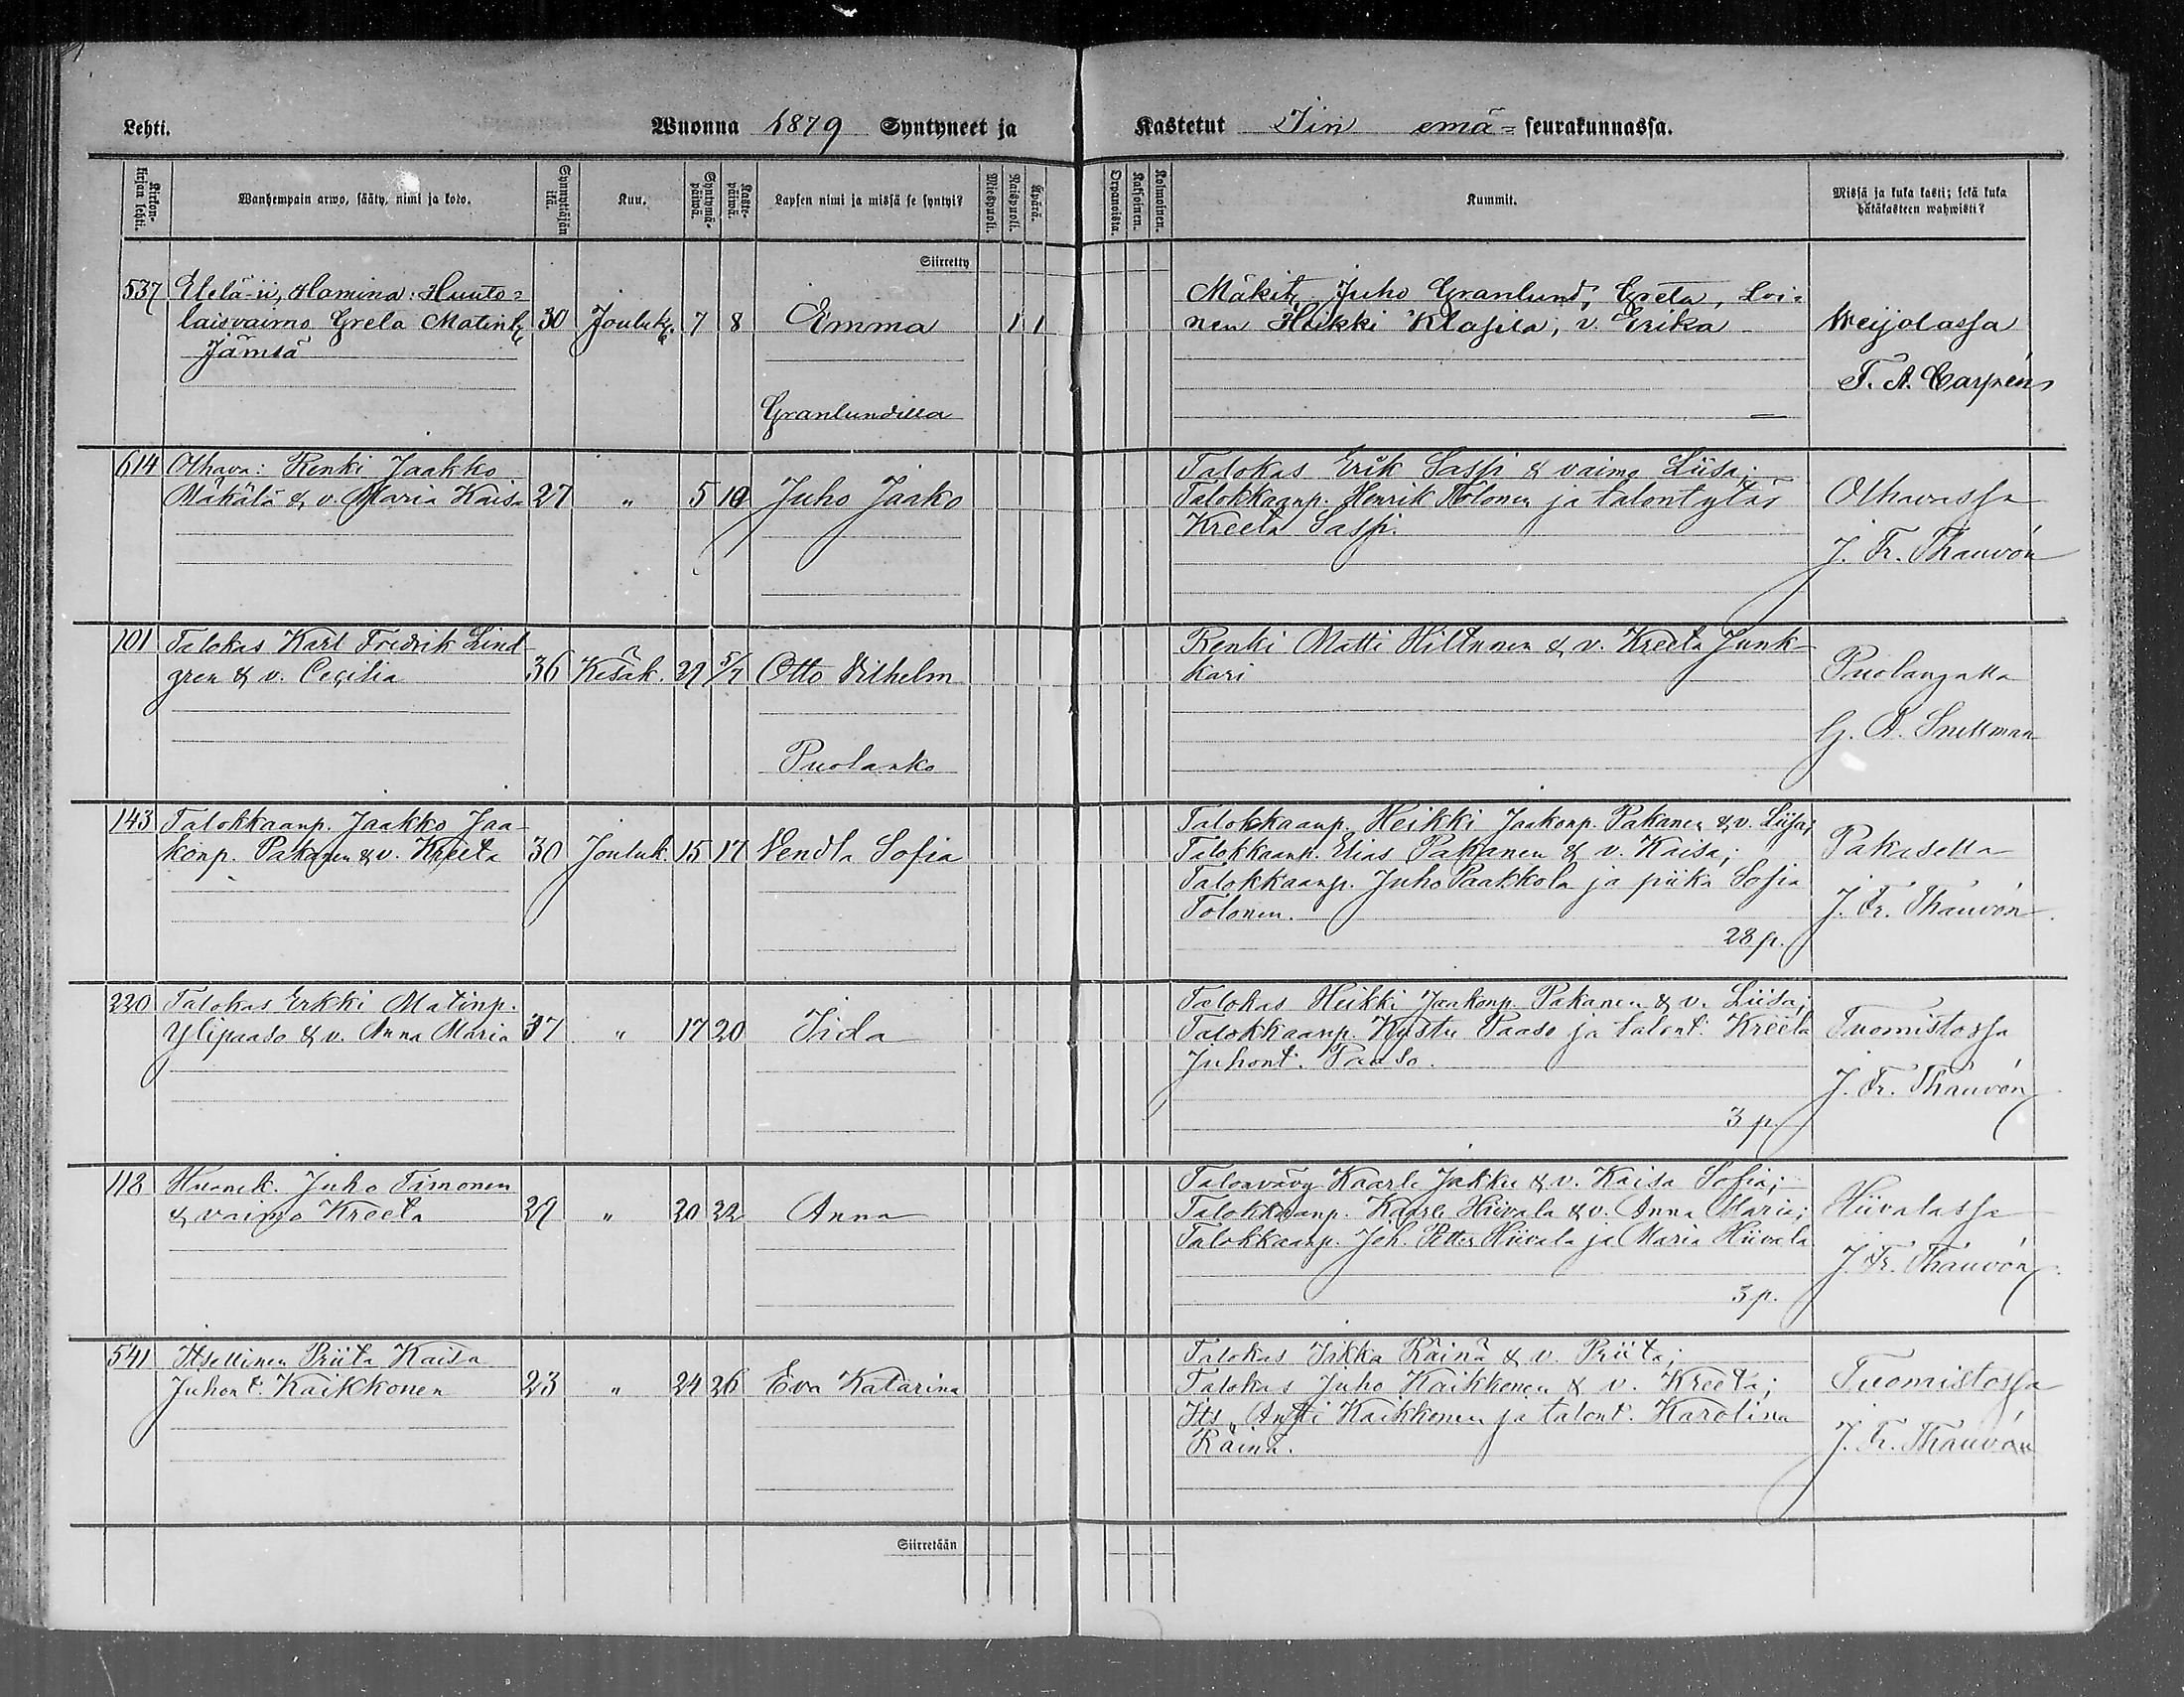 Lehti.
Wuonna 1879 Syntyneet ja
Kastetut Iin emä= seurakunnassa.
Rippikirjan lehti.
Wanhempain arwo, sääty, nimi ja koto.
Synnyttäjän ikä.
Kuu.
Syntymä-päiwä.
Kaste-päiwä.
Lapsen nimi ja missä se syntyi?
Miespuoli.
Naispuoli.
Äpärä.
Orpanoista.
Kaksoinen.
Kolmoinen.
Kummit.
Missä ja kuka kasti; sekä kuka hätäkasteen wahwisti?
Siirretty
537 Etelä-ii, Hamina: Huuto=
laisvaimo Greta Matint. 30 Jouluk. 7 8 Emma 1 1
Jämsä
Granlundilla
Mäkit. Juho Granlund, Greta, Loi=
nen Heikki Klasila, v. Erika
Weijolassa
F. A. Carpén
614 Olhava: Renki Jaakko
Mäkälä & v. Maria Kaisa 27 " 5 10 Juho Jaako
Talokas Erik Saspi & vaimo Liisa;
Talokkaanp. Henrik Holonen ja talontytär
Kreeta Saspi.
Olhavassa
J. Fr. Thauvón
101 Talokas Karl Fredrik Lind-
gren & v. Cecilia 36 Kesäk. 29 5/7 Otto Vilhelm
Puolanko
Renki Matti Hiltunen & v. Kreeta Junk-
kari
Puolangalla
G. A. Snellman
143 Talokkaanp. Jaakko Jaa-
konp. Pakanen & v. Kreeta 30 Jouluk. 15 17 Vendla Sofia
Talokkaanp. Heikki Jaakonp. Pakanen & v. Liisa;
Talokkaanp. Elias Pakanen & v. Kaisa;
Talokkaanp. Juho Paakkola ja piika Sofia
Tolonen.
28 p.
Pakasella
J. Fr. Thauvón
220 Talokas Erkki Matinp.
Ylipaaso & v. Anna Maria 37 " 17 20 Iida
Talokas Heikki Jaakonp. Pakanen & v. Liisa;
Talokkaanp. Kustu Paaso ja talont. Kreeta
Juhont. Paaso.
3 p.
Tuomistossa
J. Fr. Thauvón
118 Huonek. Juho Timonen
& vaimo Kreeta 29 " 20 22 Anna
Talonvävy Kaarle Jakku & v. Kaisa Sofia;
Talokkaanp. Kaarle Hiivala & v. Anna Maria;
Talokkaanp. Joh. Petter Hiivala ja Maria Hiivala
3 p.
Hiivalassa
J. Fr. Thauvón
541 Itsellinen Priita Kaisa
Juhont. Kaikkonen 23 " 24 26 Eva Katarina
Talokas Iikka Räinä & v. Priita;
Talokas Juho Kaikkonen & v. Kreeta;
Its. Antti Kaikkonen ja talont. Karolina
Räinä.
Tuomistossa
J. Fr. Thauvón
Siirretään